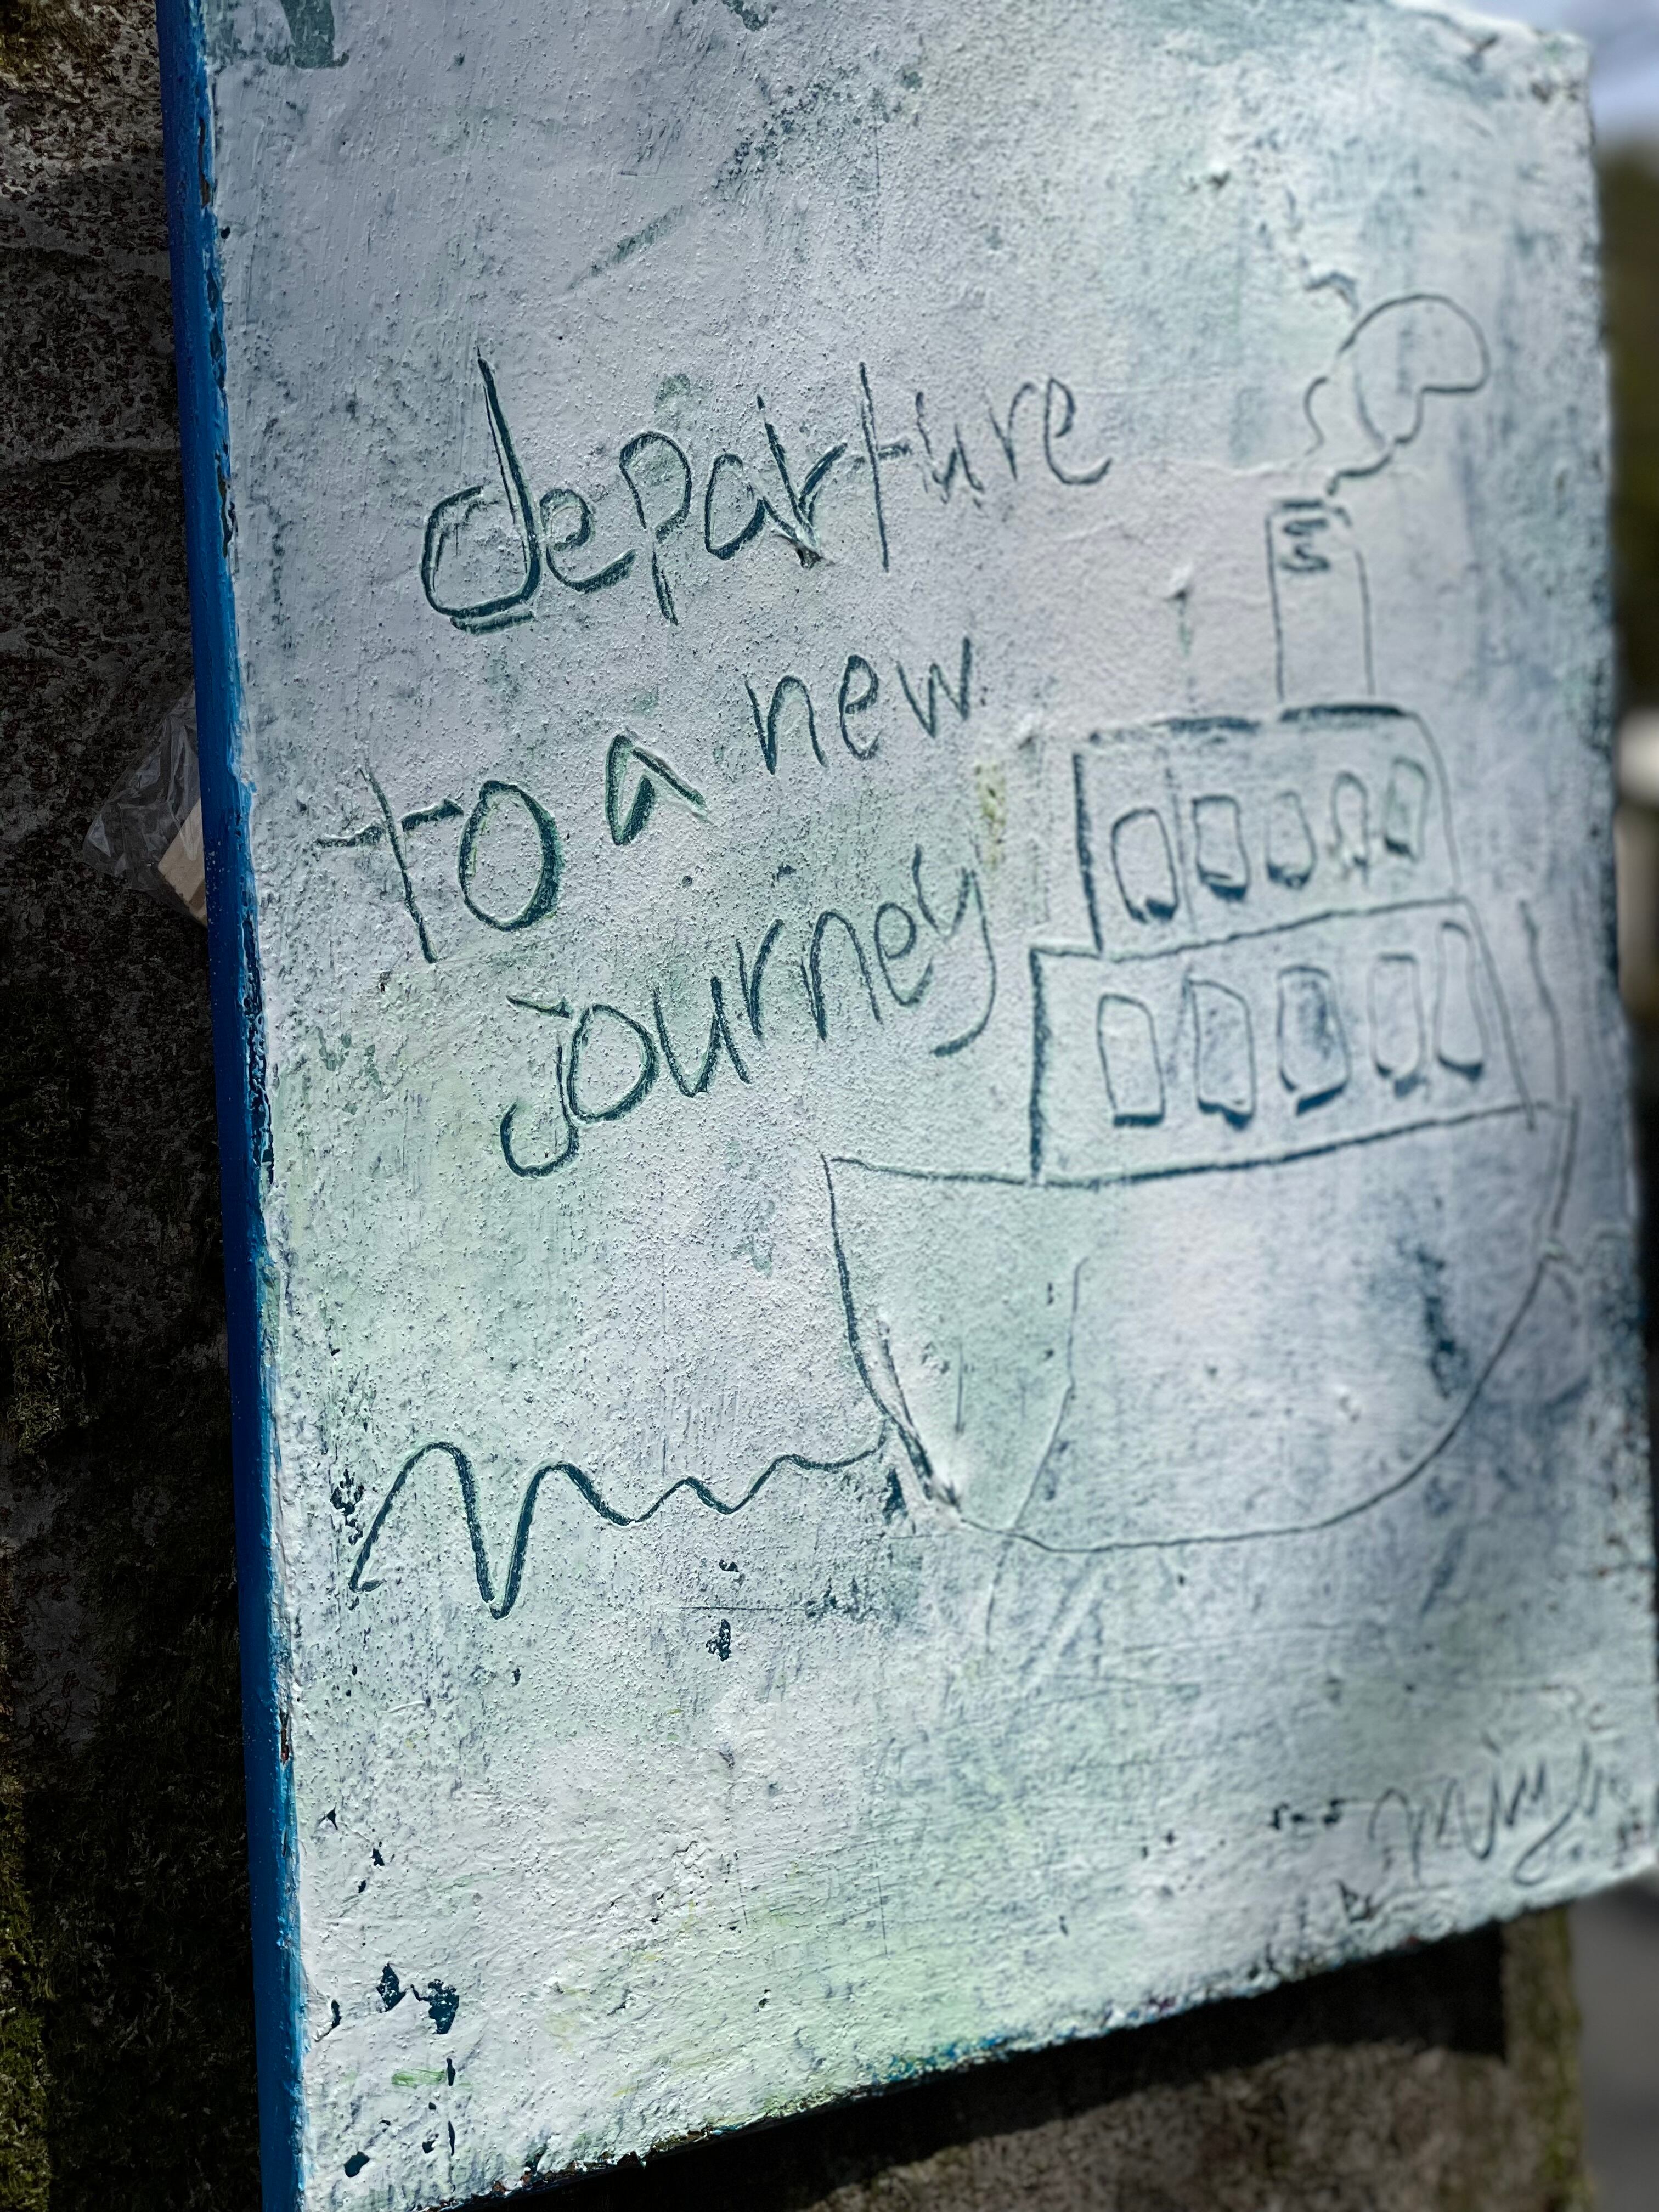 departure
to a new
journey